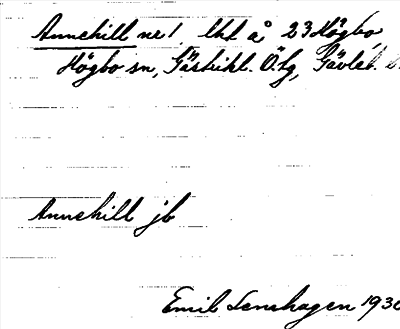 Annehill nr 1, lht å 23 Högbo,
Högbo sn, Gästrikl. Ö. tg, Gävleb.
Annehill jb
Emil Lenhagen 1930